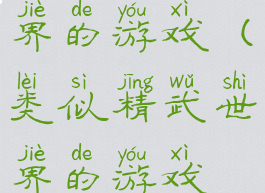 jiè de yóu xì
界的游戏（
lèi sì jīng wǔ shì
类似精武世
jiè de yóu xì
界的游戏